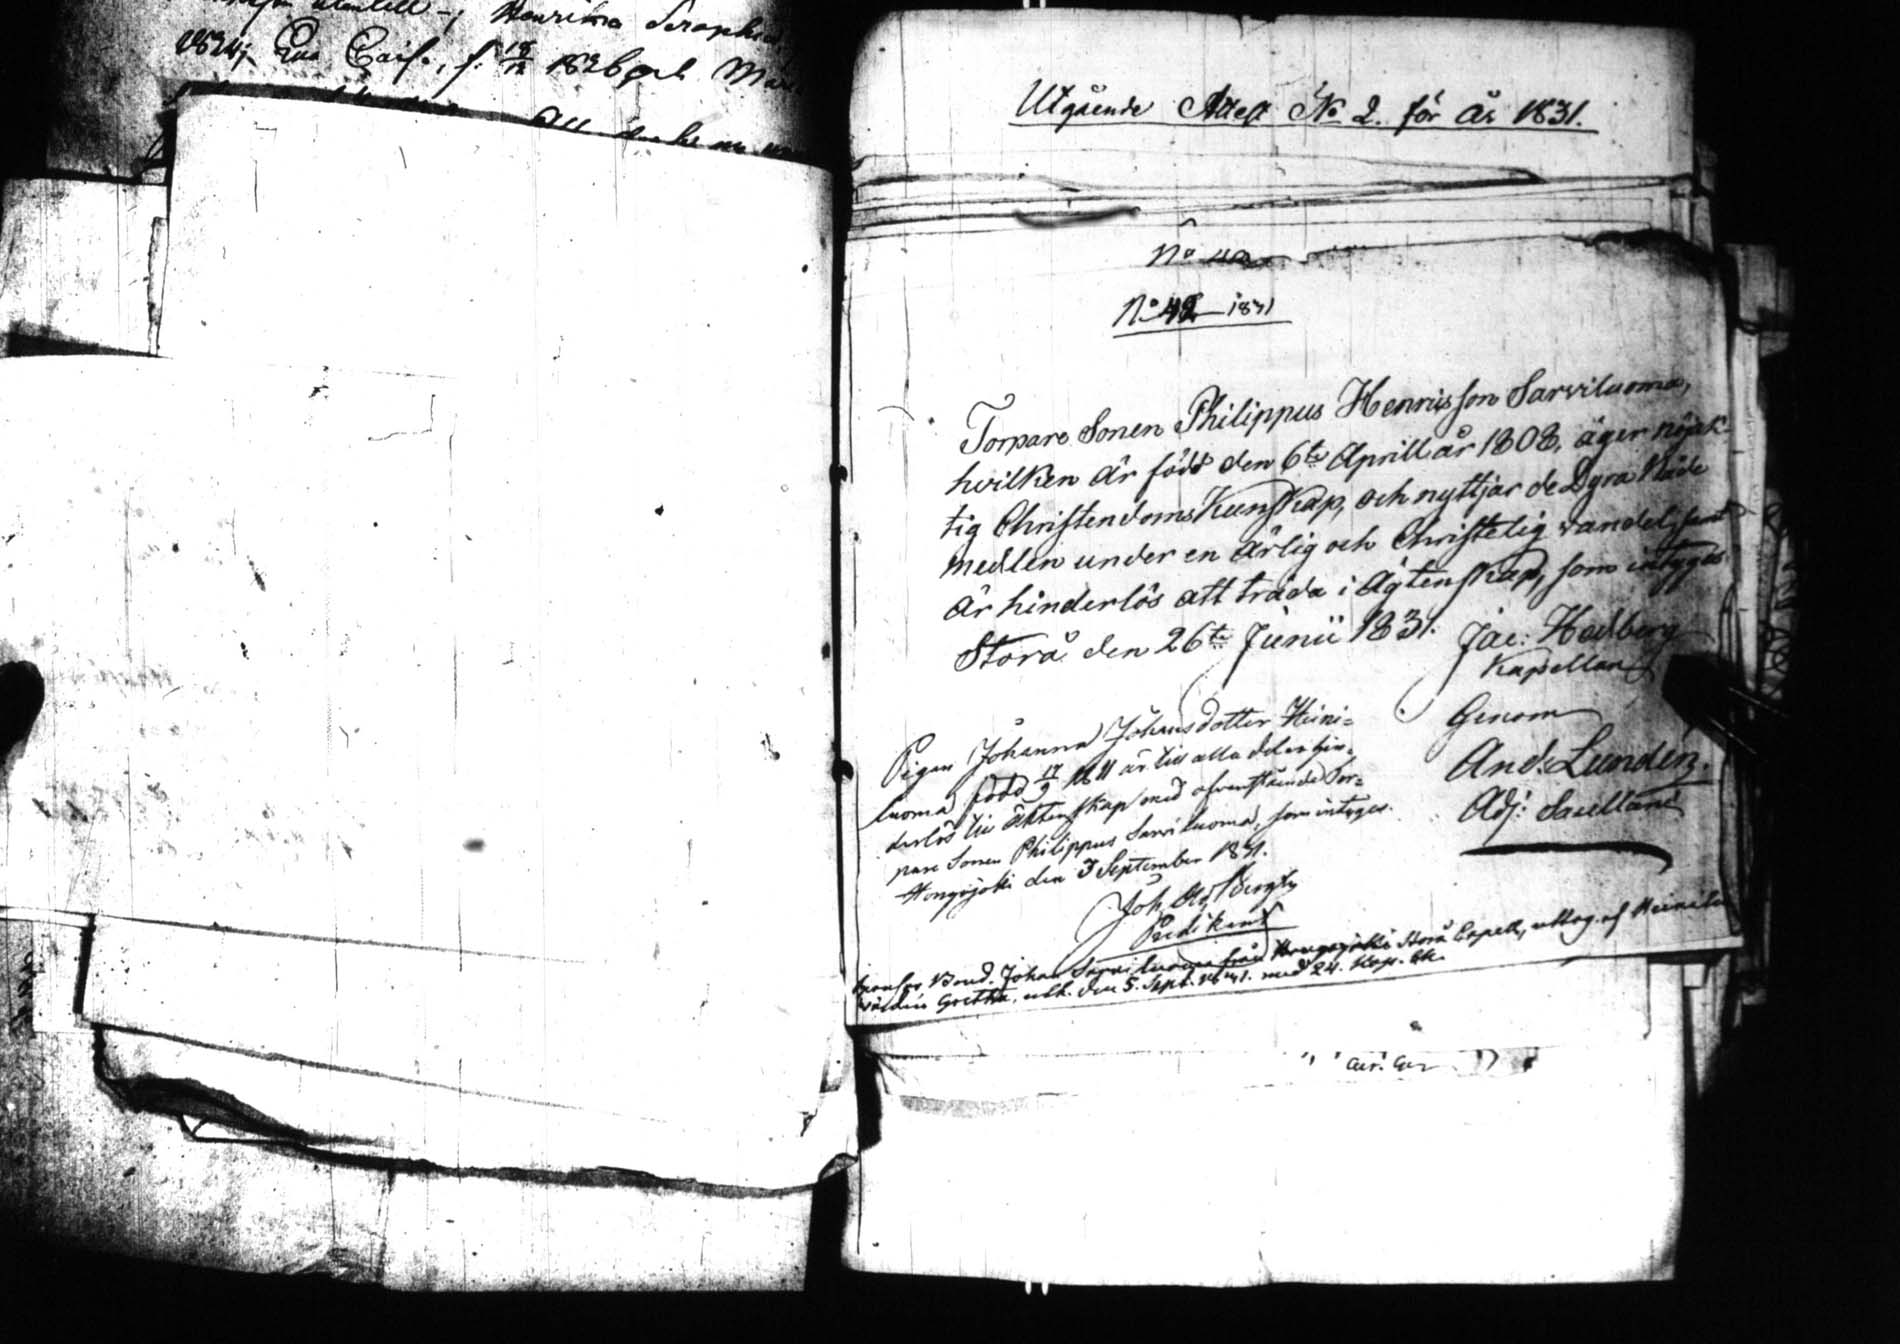 Henrika Seraphia
1824; Eva Caisa, f. 18/12 1826, och
Utgående Attest No 2. för år 1831.
No 42
No 42 1831
Torpare Sonen Philippus Henricsson Sarviluoma,
hvilken är född den 6te Aprill år 1808, äger nöjak-
tig Christendoms Kunskap, och nyttjar de Dyra Nåde
medlen under en ärlig och Christelig vandel, samt
är hinderlös att träda i Ägtenskap, som intygas
Storå den 26te Junii 1831.
Jac: Hedberg
Kapellan
Genom
And: Lundén.
Adj: Sacellani
Pigan Johanna Johansdotter Heini-
luoma född 17/9 1811 är till alla delar hin-
derlös till äktenskap med ofvanstående Tor-
pare Sonen Philippus Sarviluoma, som intygas.
Hongojoki den 3 September 1831.
Joh.
Predikant
Bond. Johan Sarviluoma från Hongojoki Storå Capell, uttog af
Gretha, utb. den 5. Sept. 1831. med 24. Kop.